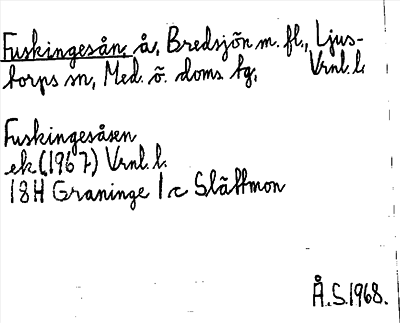 Fuskingesån, å, Bredsjön m. fl., Ljus-
torps sn, Med. ö. doms tg, Vrnl. l.
Fuskingesåsen
ek (1967) Vrnl. l.
18H Graninge 1 c Slättmon
Å.S.1968.